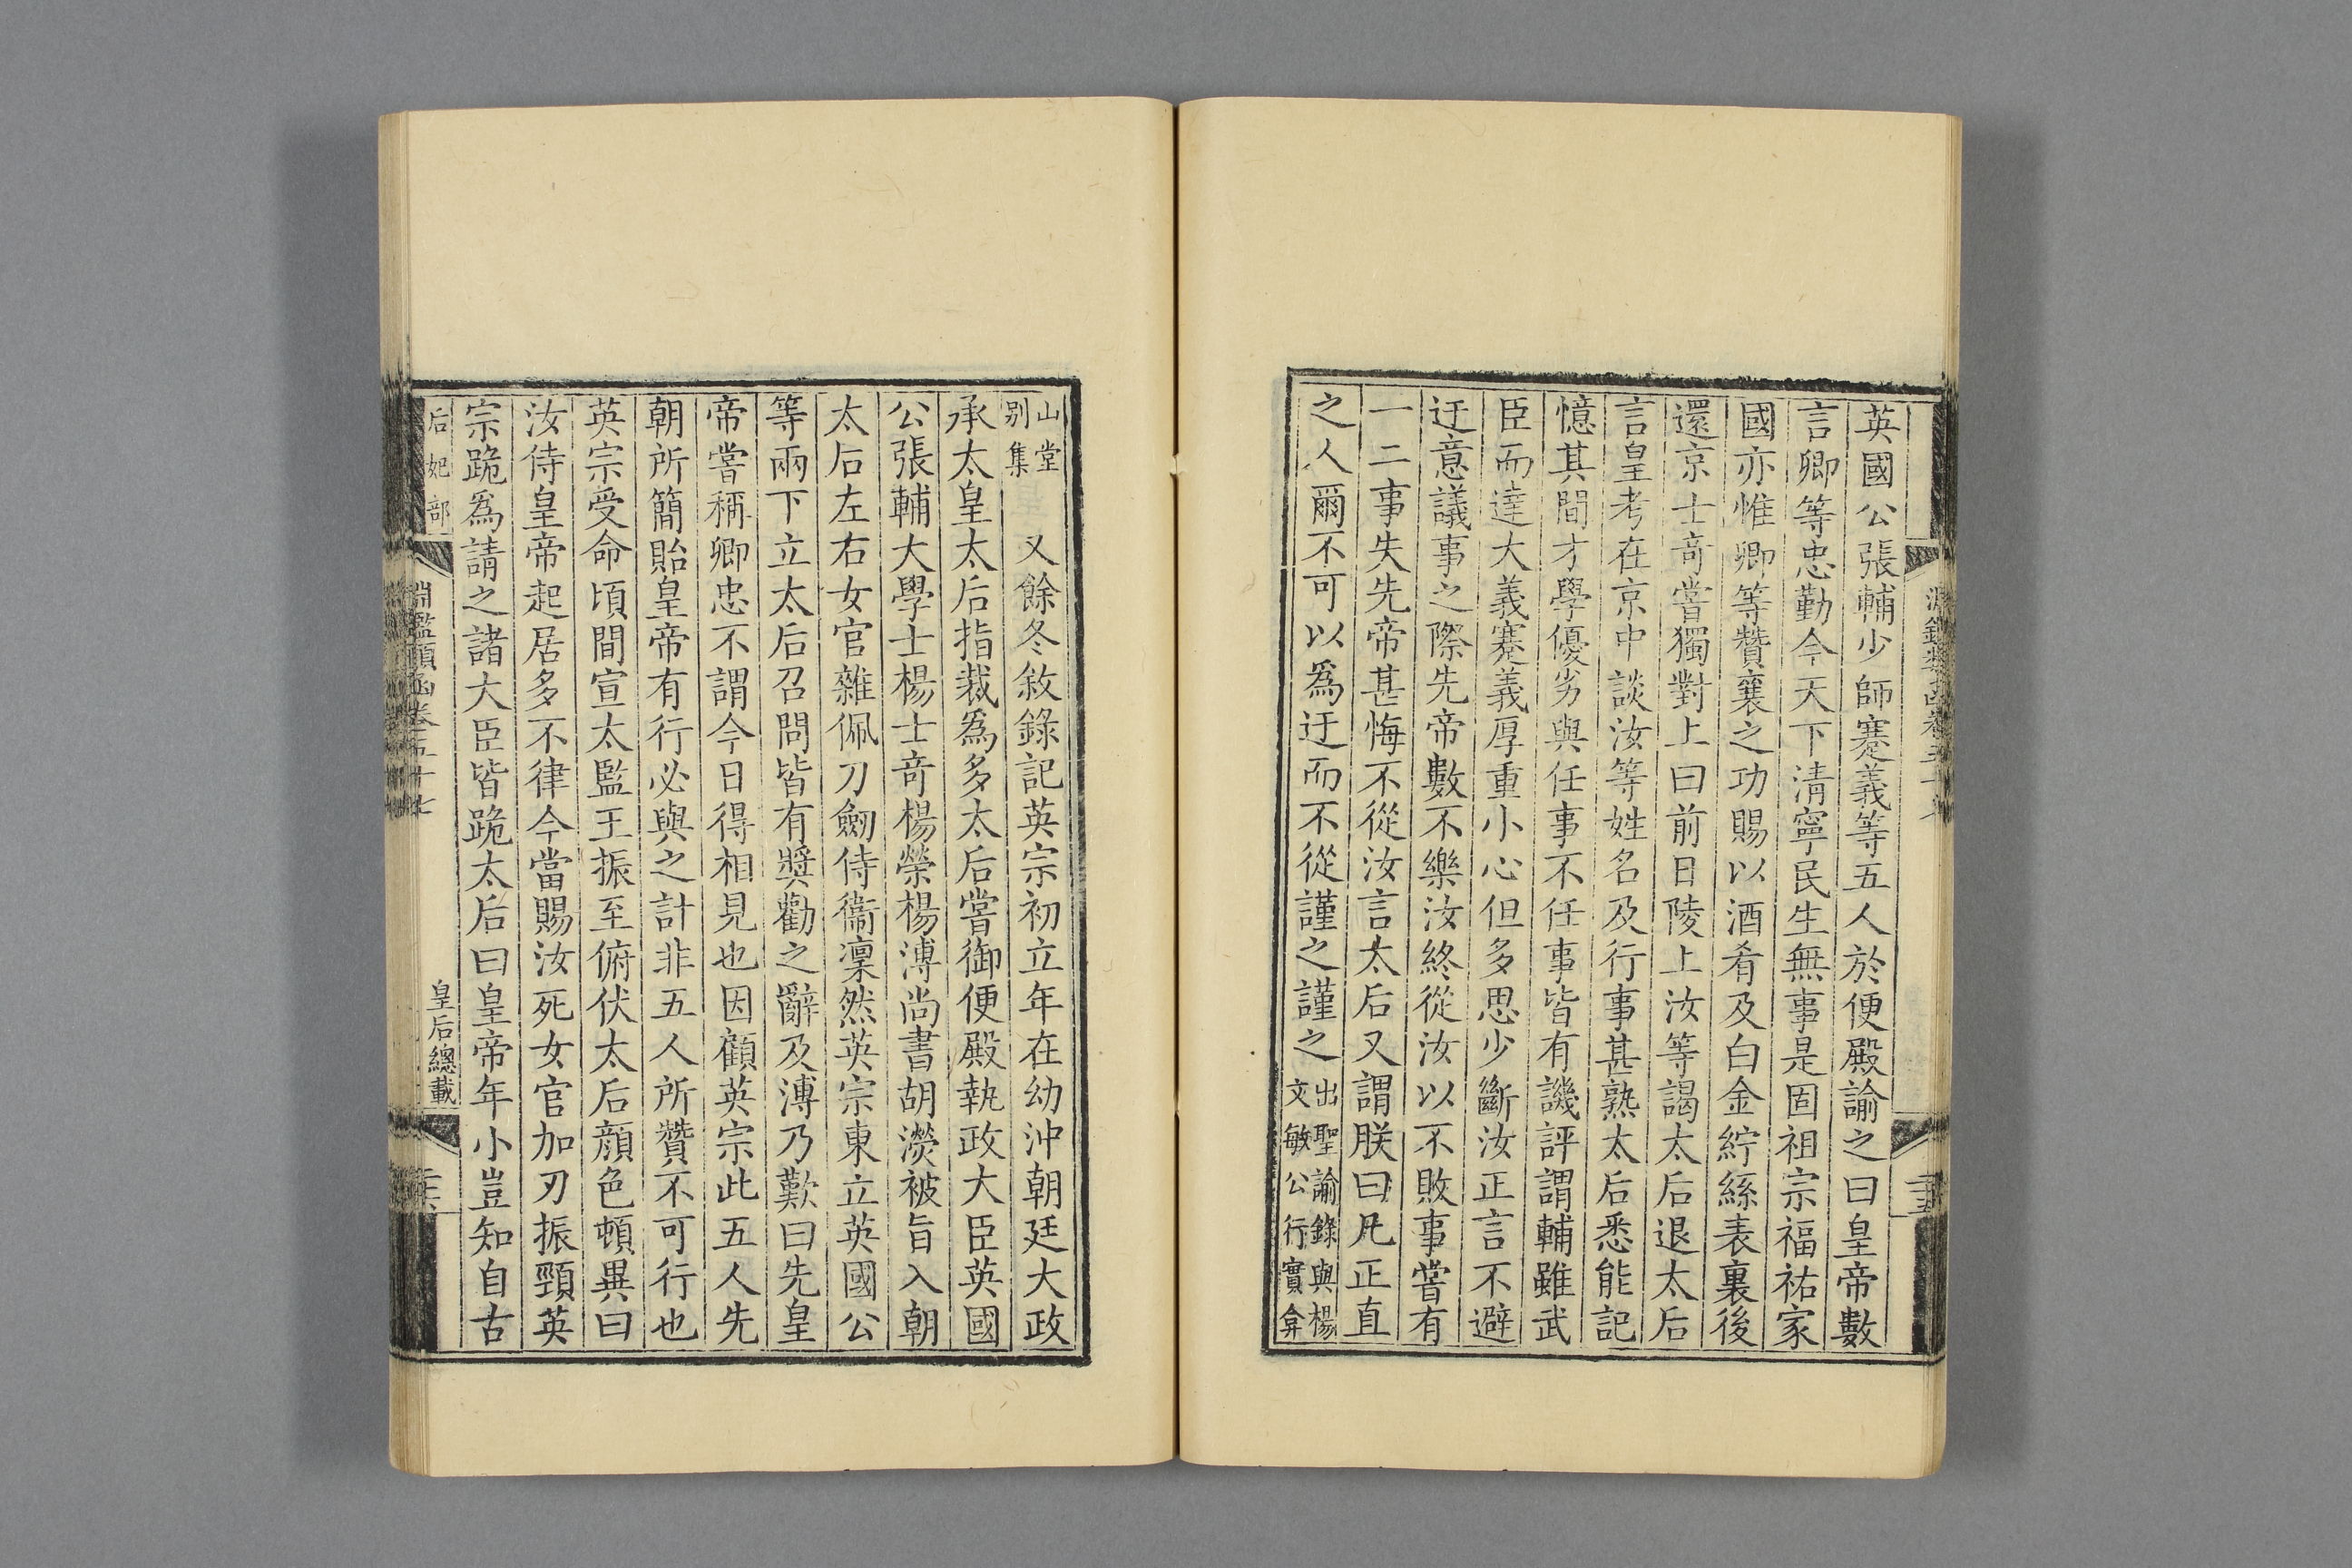 英國公張輔少師蹇義等五人於便殿諭之曰皇帝數
言卿等忠勤今天下清寧民生無事是固祖宗福祐家
國亦惟卿等贊襄之功賜以酒肴及白金紵絲表裏後
還京士奇嘗獨對上曰前日陵上汝等謁太后退太后
言皇考在京中談汝等姓名及行事甚熟太后悉能記
憶其間才學優劣與任事不任事皆有譏評謂輔雖武
臣而達大義蹇義厚重小心但多思少斷汝正言不避
迂意議事之際先帝數不樂汝終從汝以不敗事嘗有
一二事失先帝甚悔不從汝言太后又謂朕曰凡正直
之人爾不可以爲迂而不從謹之謹之
出聖諭錄與楊
文敏公行實弇
山堂
别集
又餘冬敘錄記英宗初立年在幼沖朝廷大政
承太皇太后指裁爲多太后嘗御便殿執政大臣英國
公張輔大學士楊士奇楊榮楊溥尚書胡濙被旨入朝
太后左右女官雜佩刀劒侍衞凜然英宗東立英國公
等兩下立太后召問皆有奬勸之辭及溥乃歎曰先皇
帝嘗稱卿忠不謂今日得相見也因顧英宗此五人先
朝所簡貽皇帝有行必與之計非五人所贊不可行也
英宗受命頃間宣太監王振至俯伏太后顏色頓異曰
汝侍皇帝起居多不律今當賜汝死女官加刃振頸英
宗跪爲請之諸大臣皆跪太后曰皇帝年小豈知自古
后妃部
淵鑑類函卷五十七
皇后總載